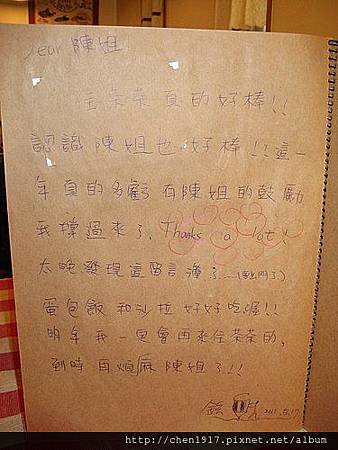 Dear 陳姐!
全茶茶真的好棒!!
認識陳姐也好棒!!這一
年真的多虧有陳姐的鼓勵
我撐過來了、Thanks a lot!
太晚發現這留言簿了~
蛋包飯和沙拉好好吃喔!!
明年我一定會再來全茶茶的,
到時再煩麻陳姐了!!
2011.5.17
http://chen1917.pixnet.net/album